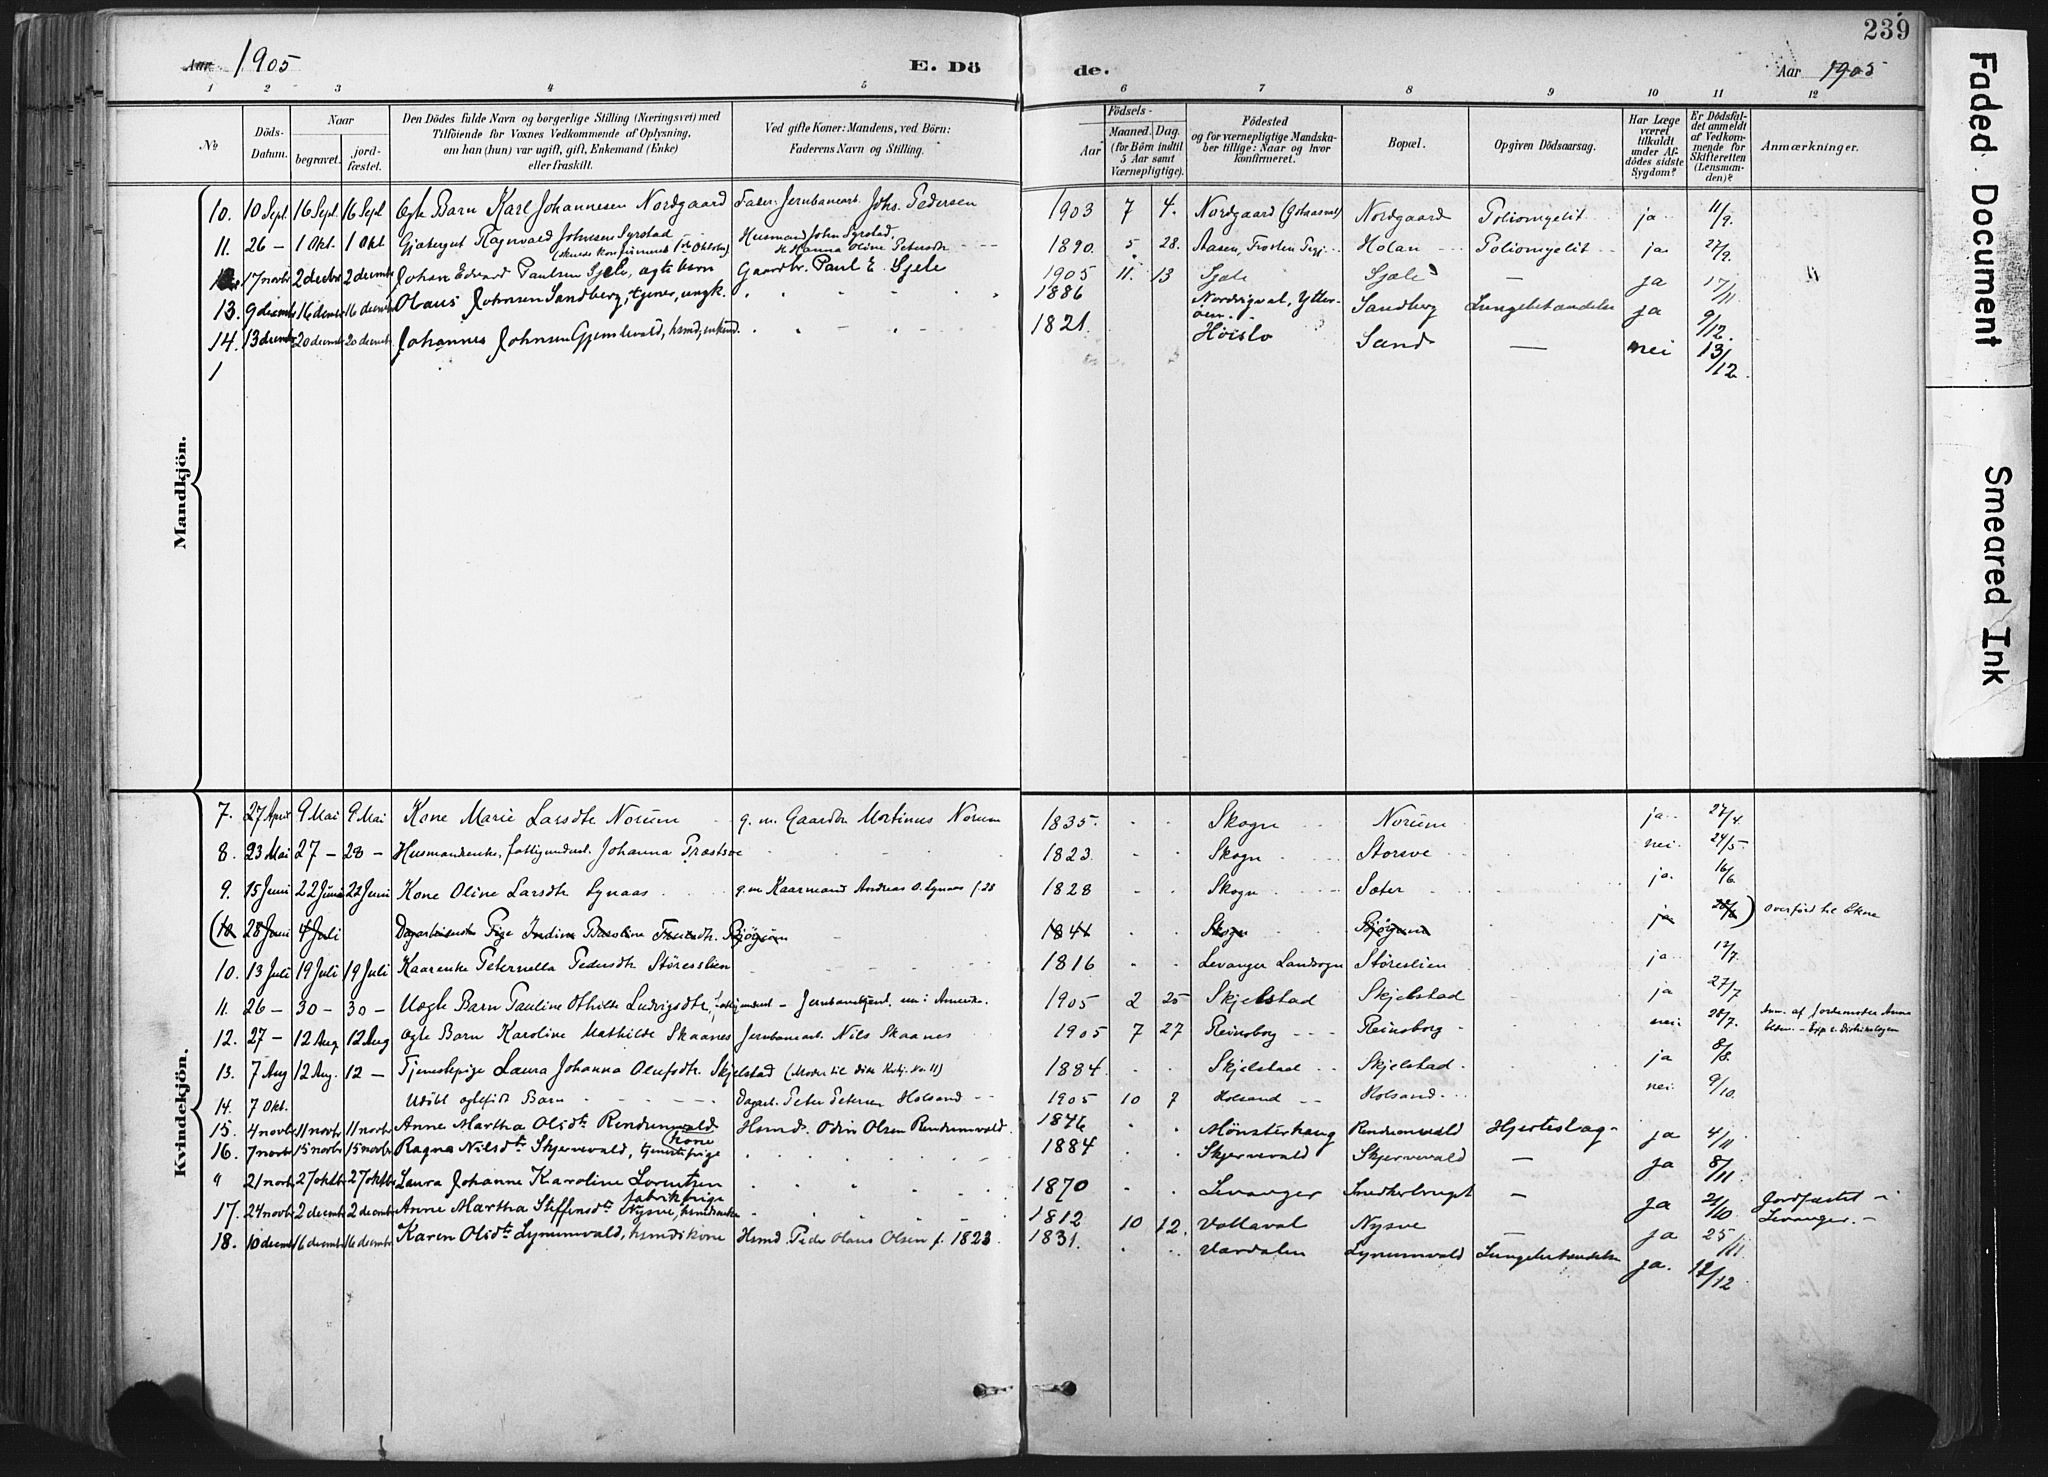 239
Aar 1905
E. Dö
de.
Aar 1905
1 2 3 4 5 6 7 8 9 10 11 12
№
Döds-Datum.
Naar
begravet.
jord-fæstet.
Den Dödes fulde Navn og borgerlige Stilling (Næringsvei) med
Tilföiende for Voxnes Vedkommende af Oplysning,
om han (hun) var ugift, gift, Enkemand (Enke)
eller fraskilt.
Ved gifte Koner: Mandens, ved Börn:
Faderens Navn og Stilling.
Födsels-
Aar
Maaned. Dag.
(for Börn indtil
5 Aar samt
Værnepligtige).
Födested
og for værnepligtige Mandska-
ber tillige: Naar og hvor
konfirmeret.
Bopæl.
Opgiven Dödsaarsag.
Har Læge
været
tilkaldt
under Af-
dödes sidste
Sygdom?
Er Dödsfal-
det anmeldt
af Vedkom-
mende for
Skifteretten
(Lensman-
den)?
Anmærkninger.
Mandkjön.
10. 10 Sept. 16 Sept. 16 Sept Ægte Barn Karl Johannesen Nordgaard Fader: Jernbanearb. Johs. Pedersen 1903 7 4. Nordgaard Nordgaard Poliomyelit ja 11/9.
11. 26 – 1 Okt. 1 Okt Gjætergut Ragnvald Johnsen Husmand John 1890. 5 28. Aasen, Holan Poliomyelit ja 27/9.
Hanna Oline Petersdtr
17 novbr 2 decbr 2 decembr Johan Edvard Paulsen Sjele, ægte barn Gaardbr. Paul E. Sjele 1905 11. 13 Sjele Sjele – ja 17/11.
13. 9 decembr 16 decmbr 16 decembr Olaus Johnsen Sandberg, tjener, ungk. 1886 Sandberg Lungebetændelse ja 9/12.
14. 13 decembr 20 decembr 20 decembr Johannes Johnsen hsmd, enkemd. 1821. Høislo Sand – nei 13/12.
1
Kvindekjön.
7. 27 April 9 Mai 9 Mai Kone Marie Larsdtr Norum g. m. Gaardbr Mortinus Norum 1835. Skogn Norum ja 27/4.
8. 23 Mai 27 – 28 – Husmandsenke, Johanna Præstsve 1823. Skogn Storsve nei 24/5.
9. 15 Juni 22 Juni 22 Juni Kone Oline Larsdtr Lynaas g. m. Kaarmand Andreas O. Lynaas f. 28 1828 Skogn Sæter ja. 16/6.
(10. 28 Juni 4 Juli Pige 1841 Skogn ja 28/6) overført til Ekne
10. 13 Juli 19 Juli 19 Juli Kaarenke Peternella Pedersdtr Støresslien 1816 Levanger Landsogn Støreslien ja 17/7.
11. 26 – 30 – 30 – Uægte Barn Pauline Othilde Ludvigsdtr, i Amerika. 1905 2 25 Skjelstad Skjelstad ja 27/7
12. 27 – 12 Aug. 12 Aug Ægte Barn Karoline Mathilde Skaanes Jernbanearb. Nils Skaanes 1905 7 27 Reinsborg Reinsborg nei 28/7. Anm. af Jordemoder Anna
13. 7 Aug 12 Aug. 12 – Tjenestepige Laura Johanna Olufsdtr. Skjelstad (Moder til døde Kvkj. No. 11) 1884. Skjelstad Skjelstad. ja 8/8.
14. 7 Okt. Udøbt ægtefødt Barn Dagarb. Peter Petersen Holsand 1905 10 7 Holsand Holsand. nei. 9/10.
15. 4 novbr 11 novbr 11 novbr Anne Martha Olsdtr Rendumvald Hsmd. Odin Olsen Rendumvald. 1846 Mønsterhaug Rendumvald Hjerteslag ja 4/11
kone
16. 7 novbr 15 novbr 15 novbr Ragna Nilsdtr Skjervevald, tjenestepige 1884 Skjervevald Skjervevald – ja 8/11.
" 21 novbr 27 oktbr 27 oktbr Laura Johanne Karoline Lorentzen 1870 Levanger – ja 21/10 Jordfæstet i
fabrikpige Levanger. –
17. 24 novbr 2 decembr 2 decembr Anne Martha Steffensdtr Nysve, 1812 10 12. Nysve ja 25/11.
18. 10 decembr 16 decembr 16 decembr Karen Olsdtr Lynumvald, hsmdskone Hsmd. Peder Olaus Olsen f. 1823. 1831. Værdalen Lynumvald Lungebetændelse ja. 12/12
Faded Document
Smeared Ink